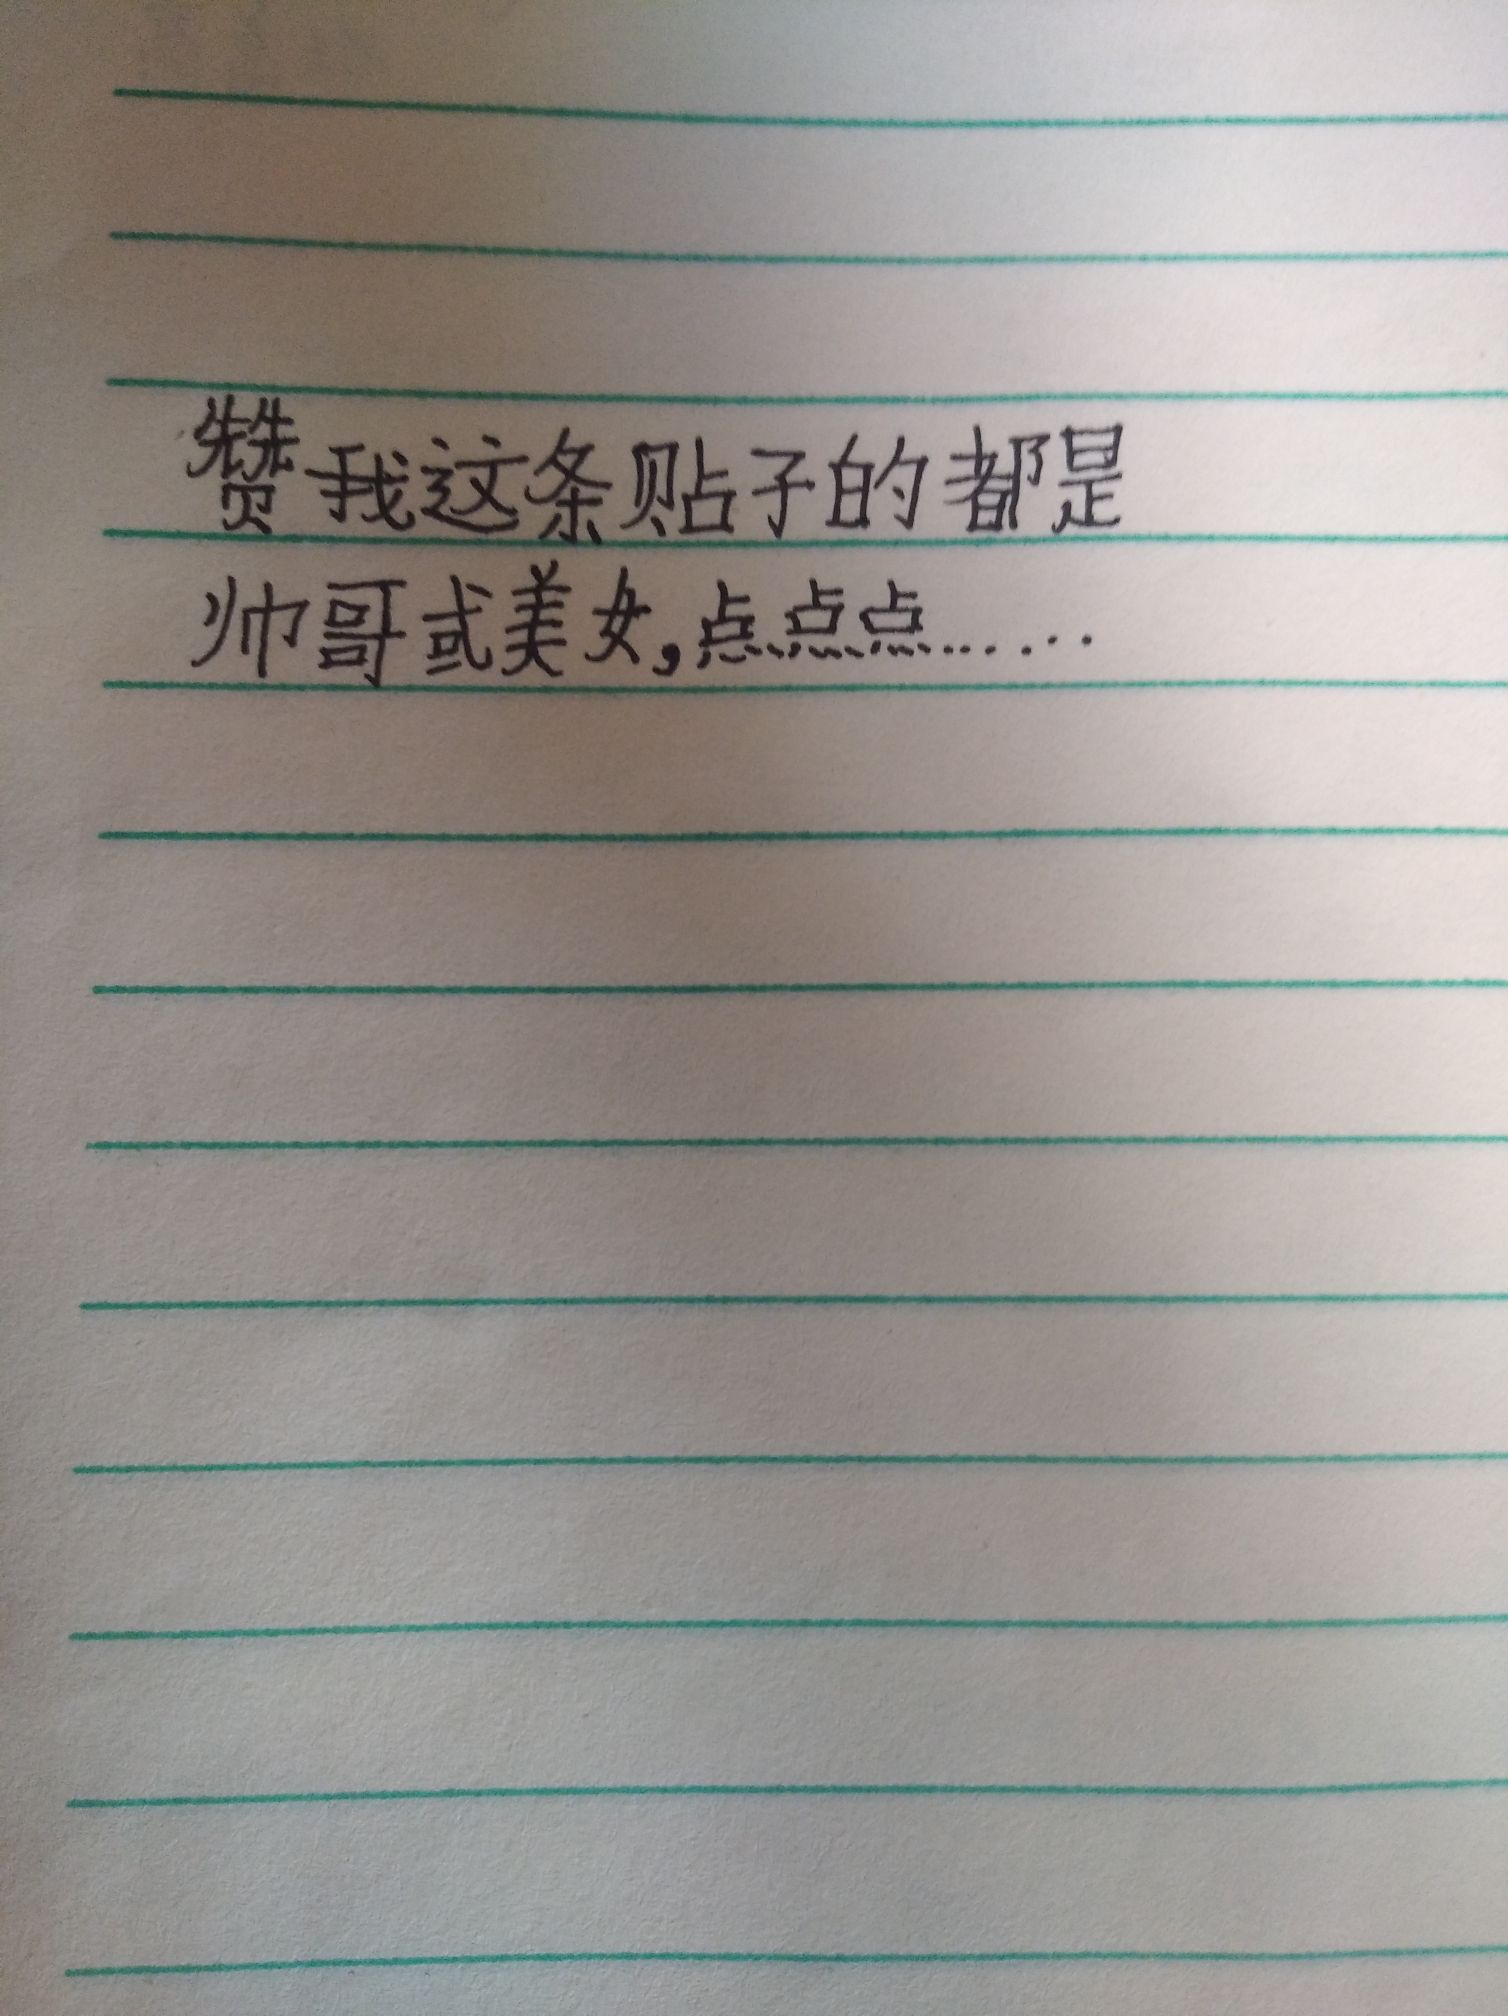 赞我这条贴子的都是
帅哥或美女,点点点……